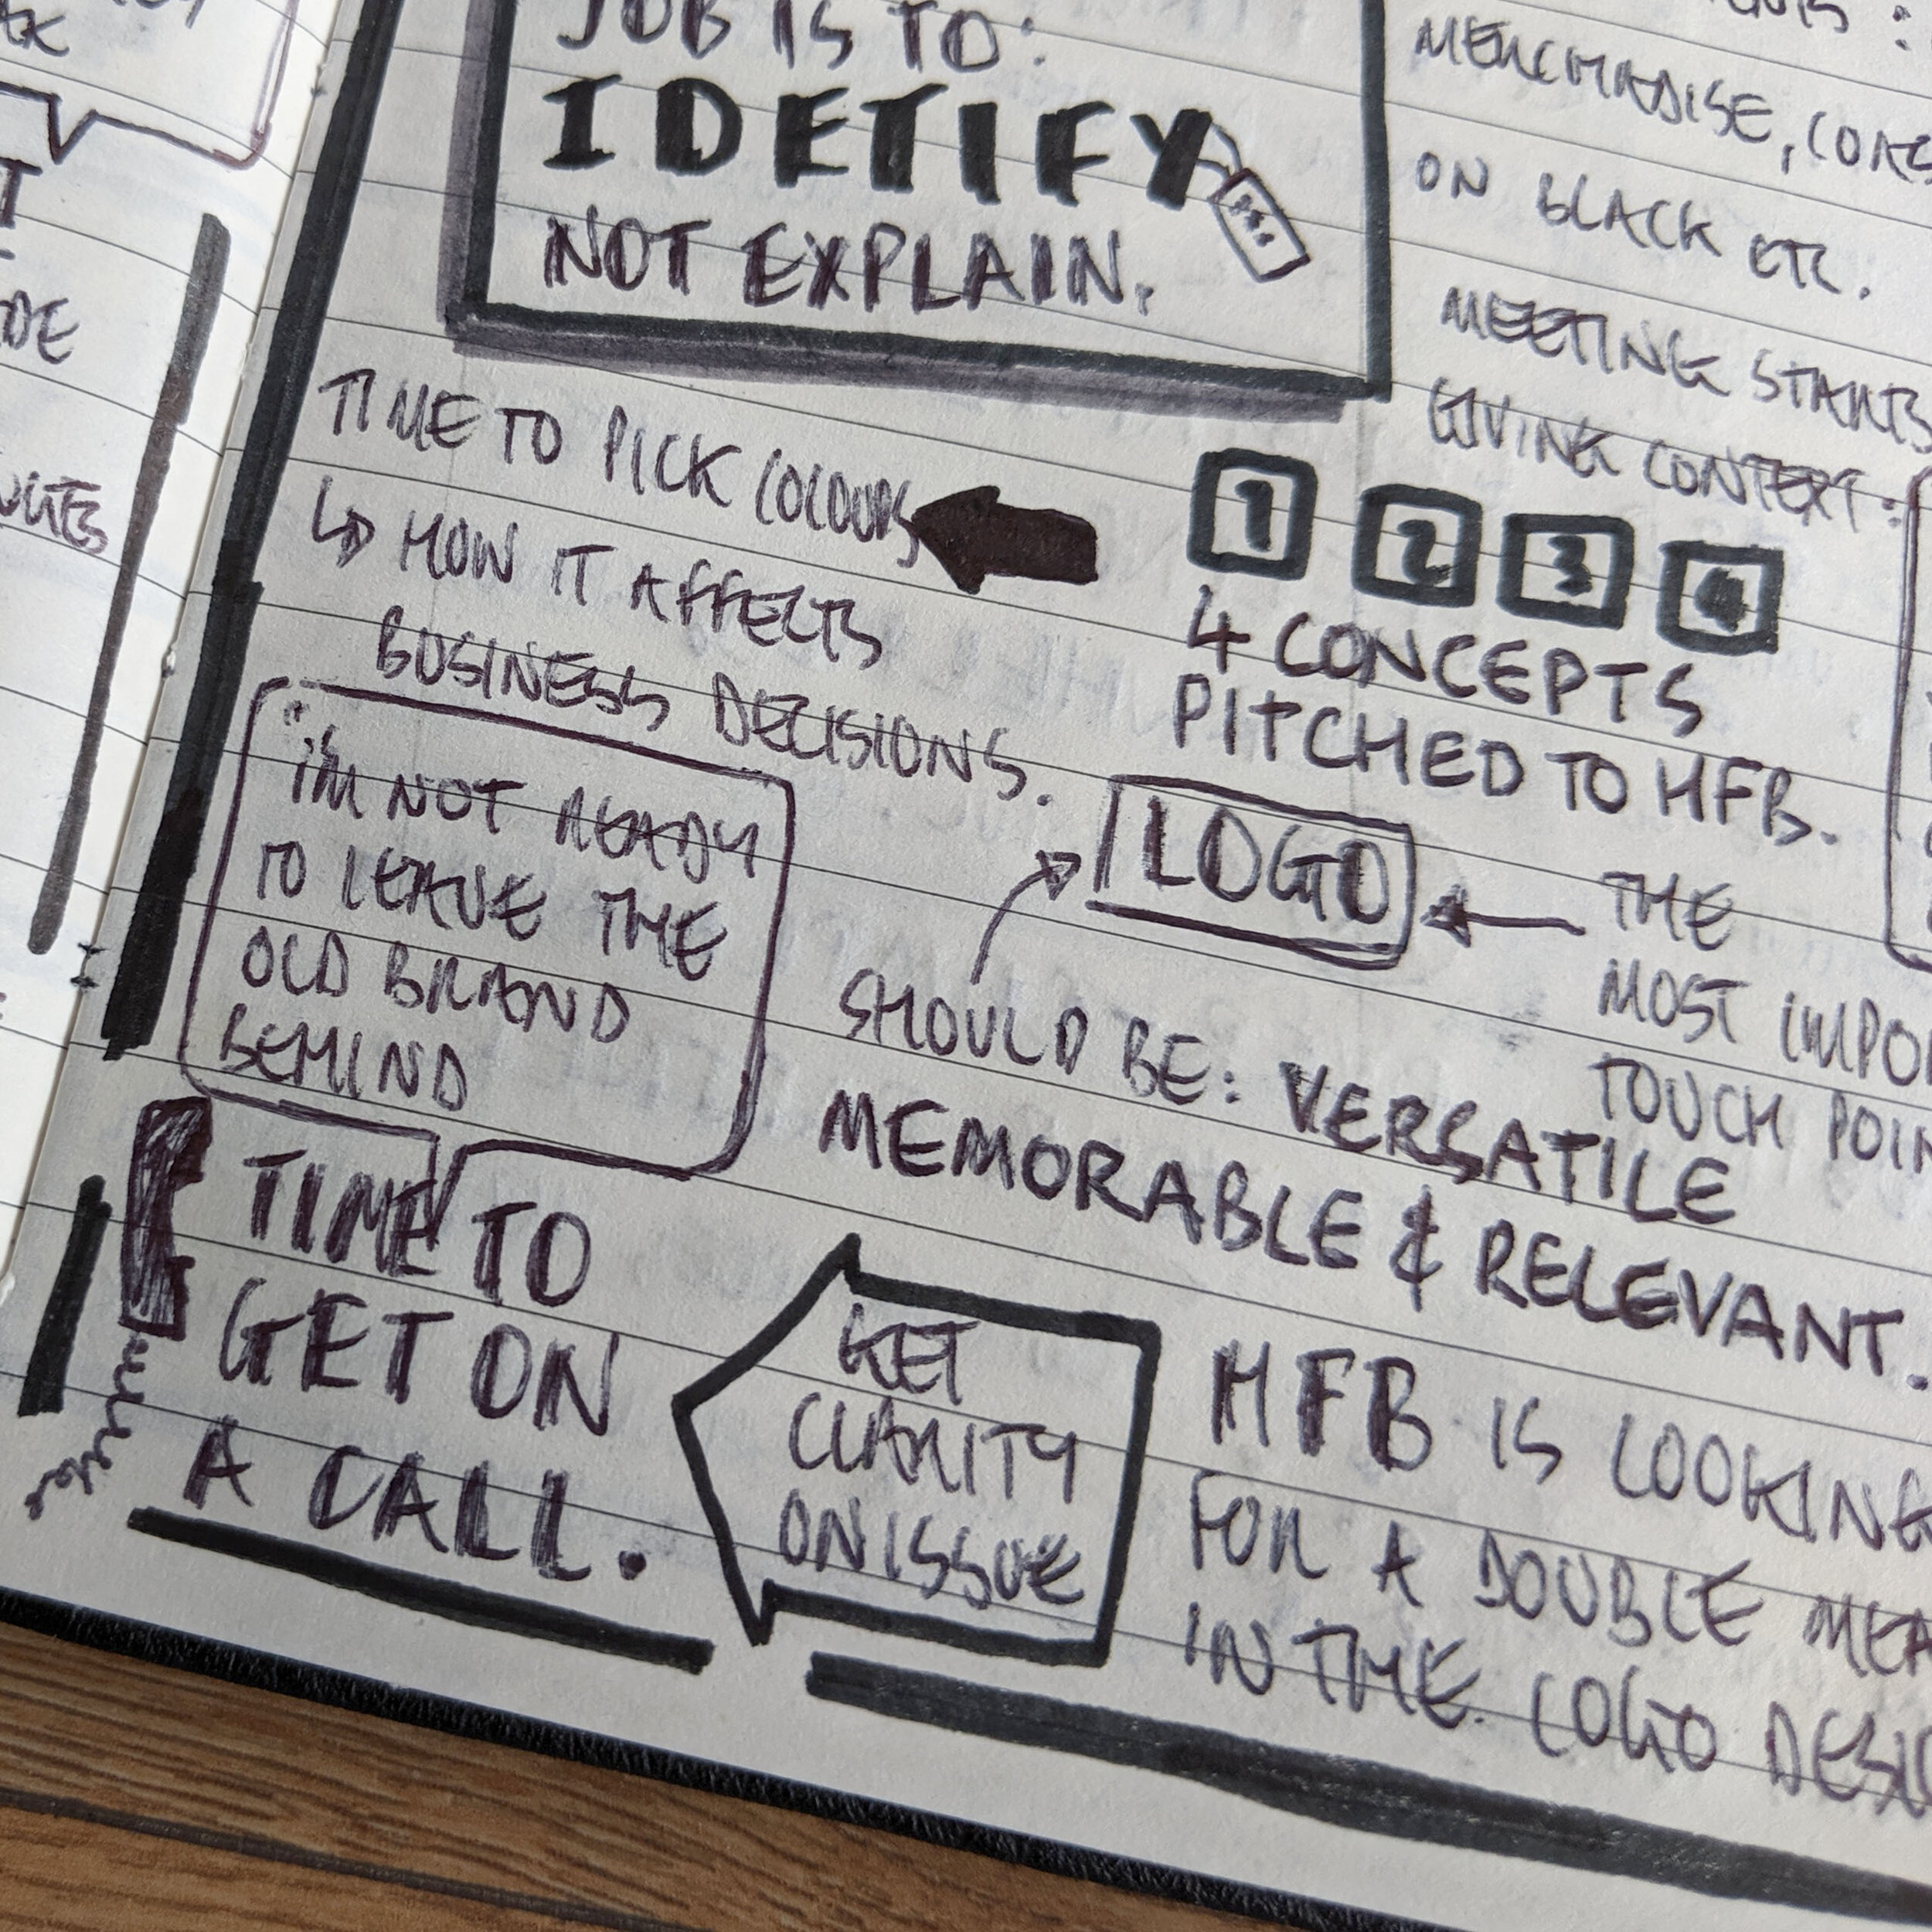 JOB IS TO:
IDETIFY
NOT EXPLAIN.
MERCHANDISE,
ON BLACK ETC.
MEETING STARTS
GIVING CONTEXT:
TIME TO PICK COLOURS
HOW IT AFFECTS
BUSINESS DECISIONS.
1 2 3 4
4 CONCEPTS
PITCHED TO HFB.
I'M NOT READY
TO LEAVE THE
OLD BRAND
BEHIND
LOGO
THE
MOST
TOUCH
SHOULD BE: VERSATILE
MEMORABLE & RELEVANT.
TIME TO
GET ON
A CALL.
GET
CLARITY
ON ISSUE
HFB IS LOOKING
FOR A DOUBLE
IN THE LOGO